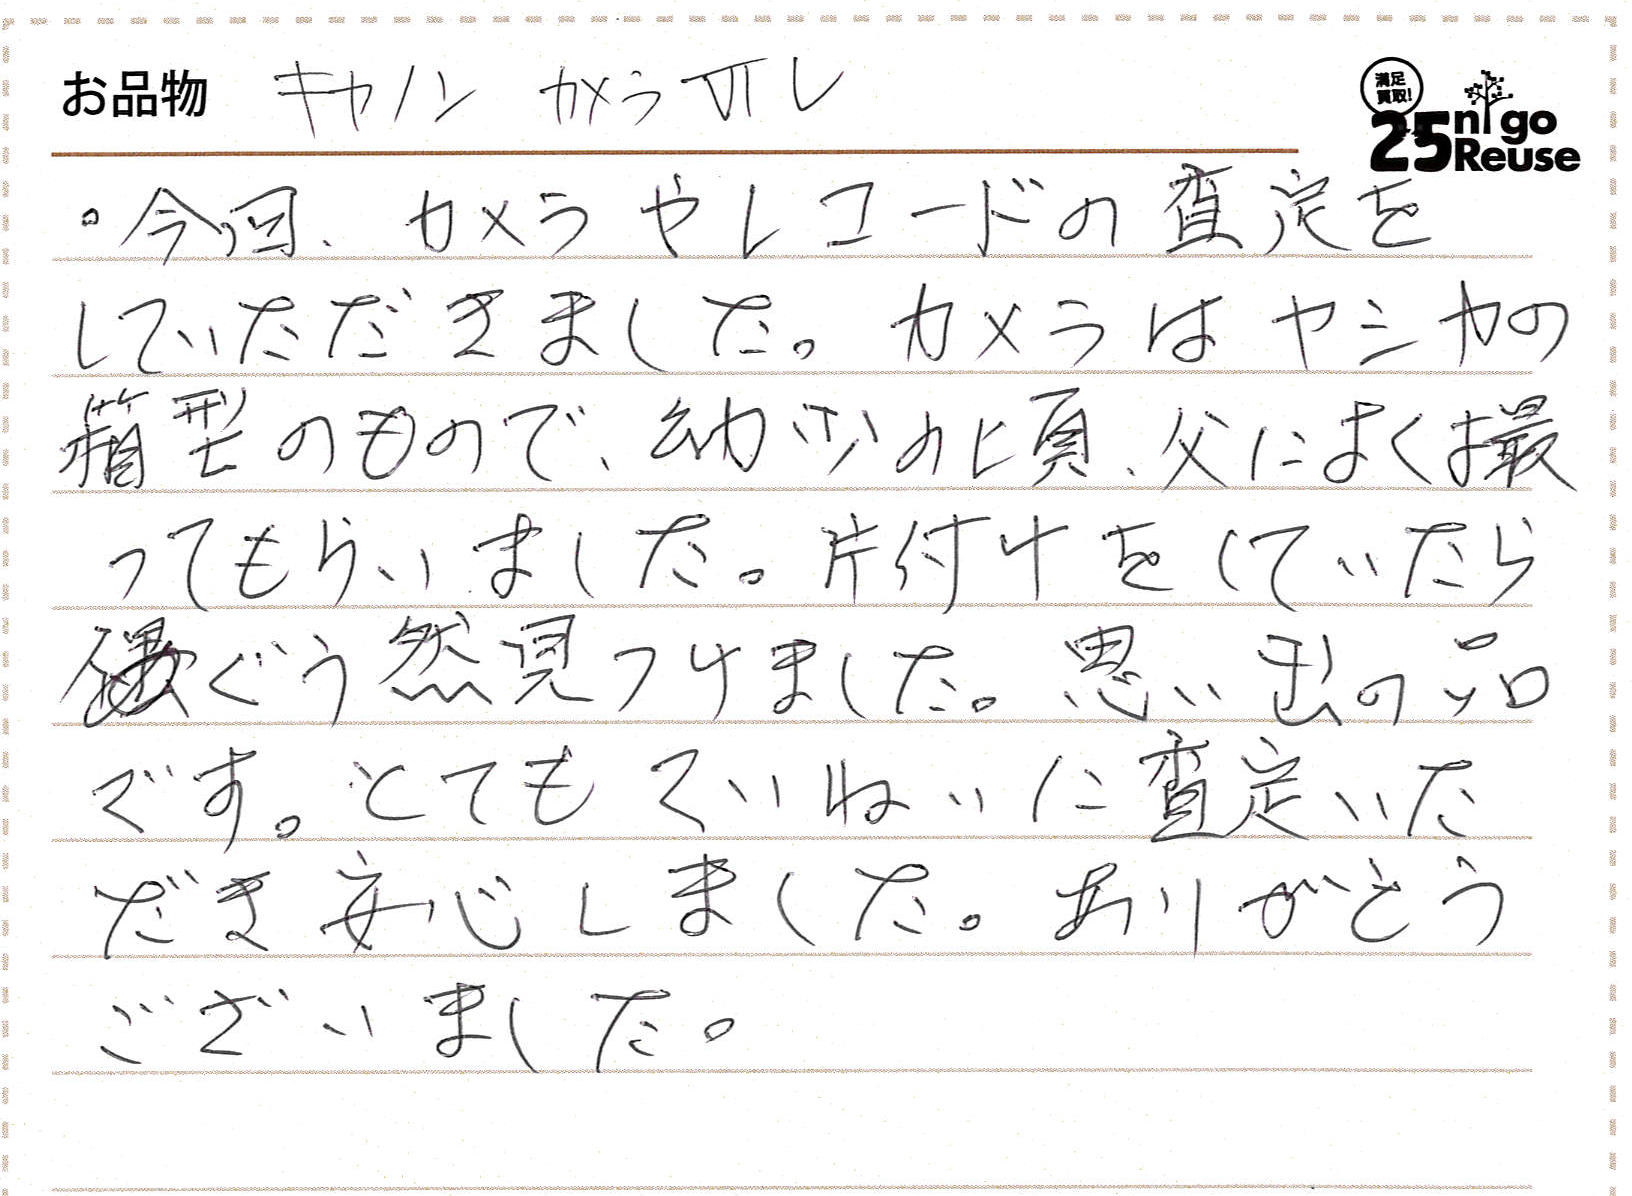 お品物 キヤノン カメラ VI L
満足
買取!
25 nigo
Reuse
。今回、カメラやレコードの査定を
していただきました。カメラはヤシカの
箱型のもので、幼少の頃、父によく撮
ってもらいました。片付けをしていたら
ぐう然見つけました。思い出の品
です。とてもていねいに査定いた
だき安心しました。ありがとう
ございました。